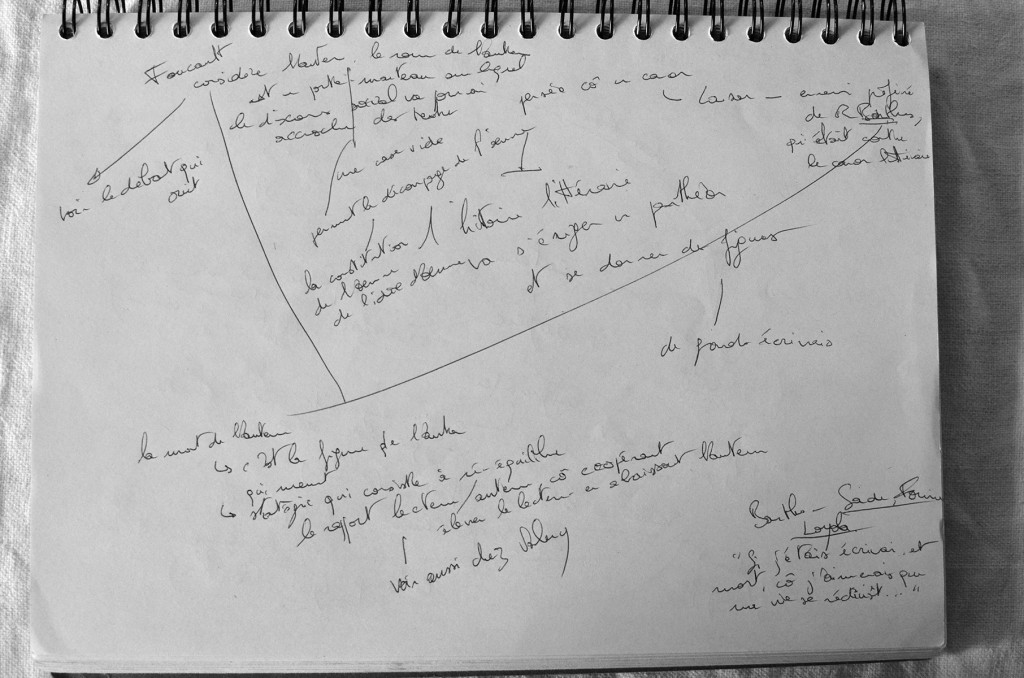 Foucault
considère l'auteur, le nom de l'auteur
est un porte-manteau sur lequel
le discours social va pouvoir
accrocher des textes
voir le débat qui
suit
une case vide
permet le découpage de l'œuvre
la constitution
de l'œuvre
de l'idée d'œuvre
l'histoire littéraire
va s'ériger un panthéon
et se donner des figures
de grands écrivains
Lanson – ennemi préféré
de R Barthes,
qui était contre
le canon littéraire
la mort de l'auteur
↳ c'est la figure de l'auteur
qui meurt
↳ stratégie qui consiste à ré-équilibrer
le rapport lecteur/auteur, cô coopérant
élever le lecteur en abaissant l'auteur
voir aussi chez Valéry
Barthes – Sade, Fourier
Loyola
"Si j'étais écrivain, et
mort, cô j'aimerais que
ma vie se réduisît..."